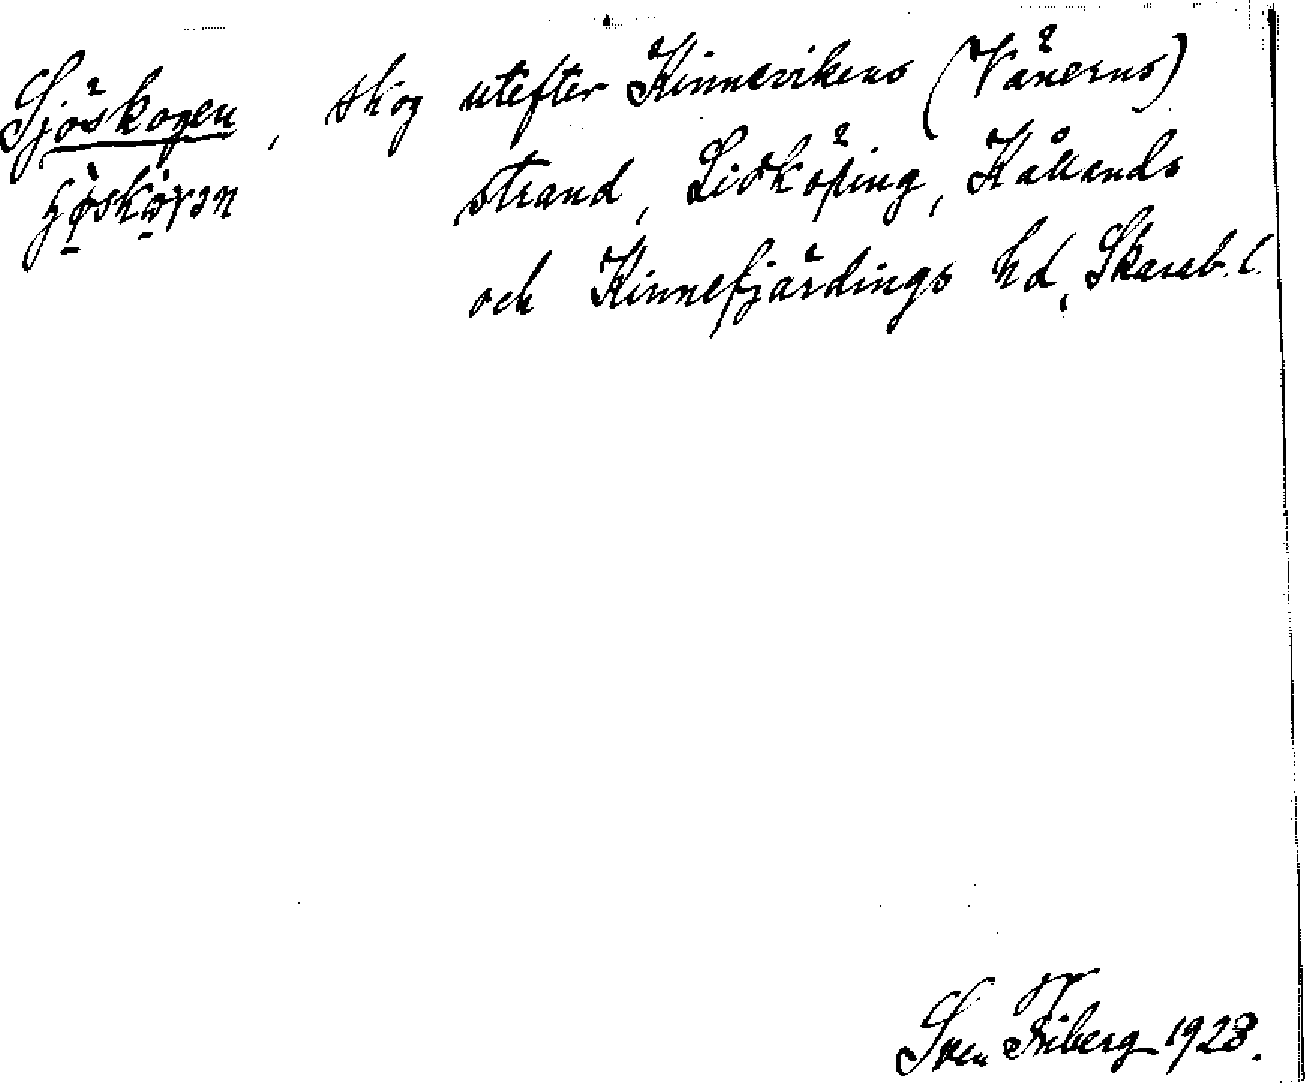 Sjöskogen, skog utefter Kinnevikens (Vänerns)
strand, Lidköping, Kållands
och Kinnefjärdings hd, Skarab. l.
Sven Friberg 1928.